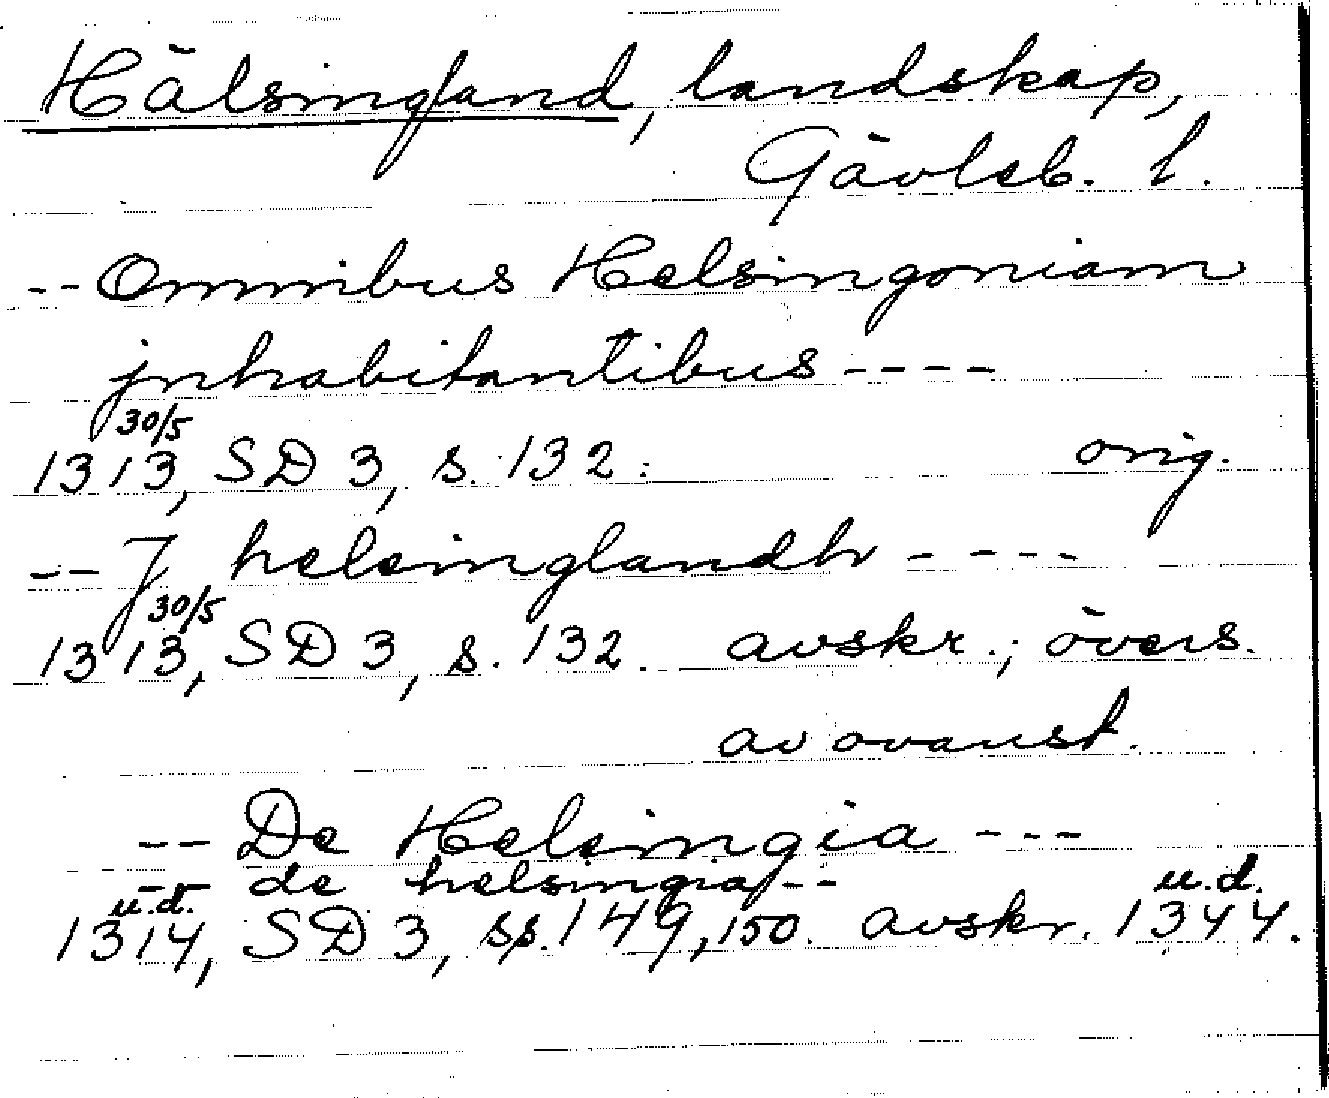 Hälsingland, landskap,
Gävleb. l.
-- Omnibus Helsingoniam
jnhabitantibus ----
30/5
1313, SD 3, s. 132. orig.
-- J helsinglandh ----
30/5
1313, SD 3, s. 132. avskr.; övers.
av ovanst.
-- De Helsingia ---
-- de helsingia --
u.d. u.d.
1314, SD 3, ss. 149, 150. avskr. 1344.